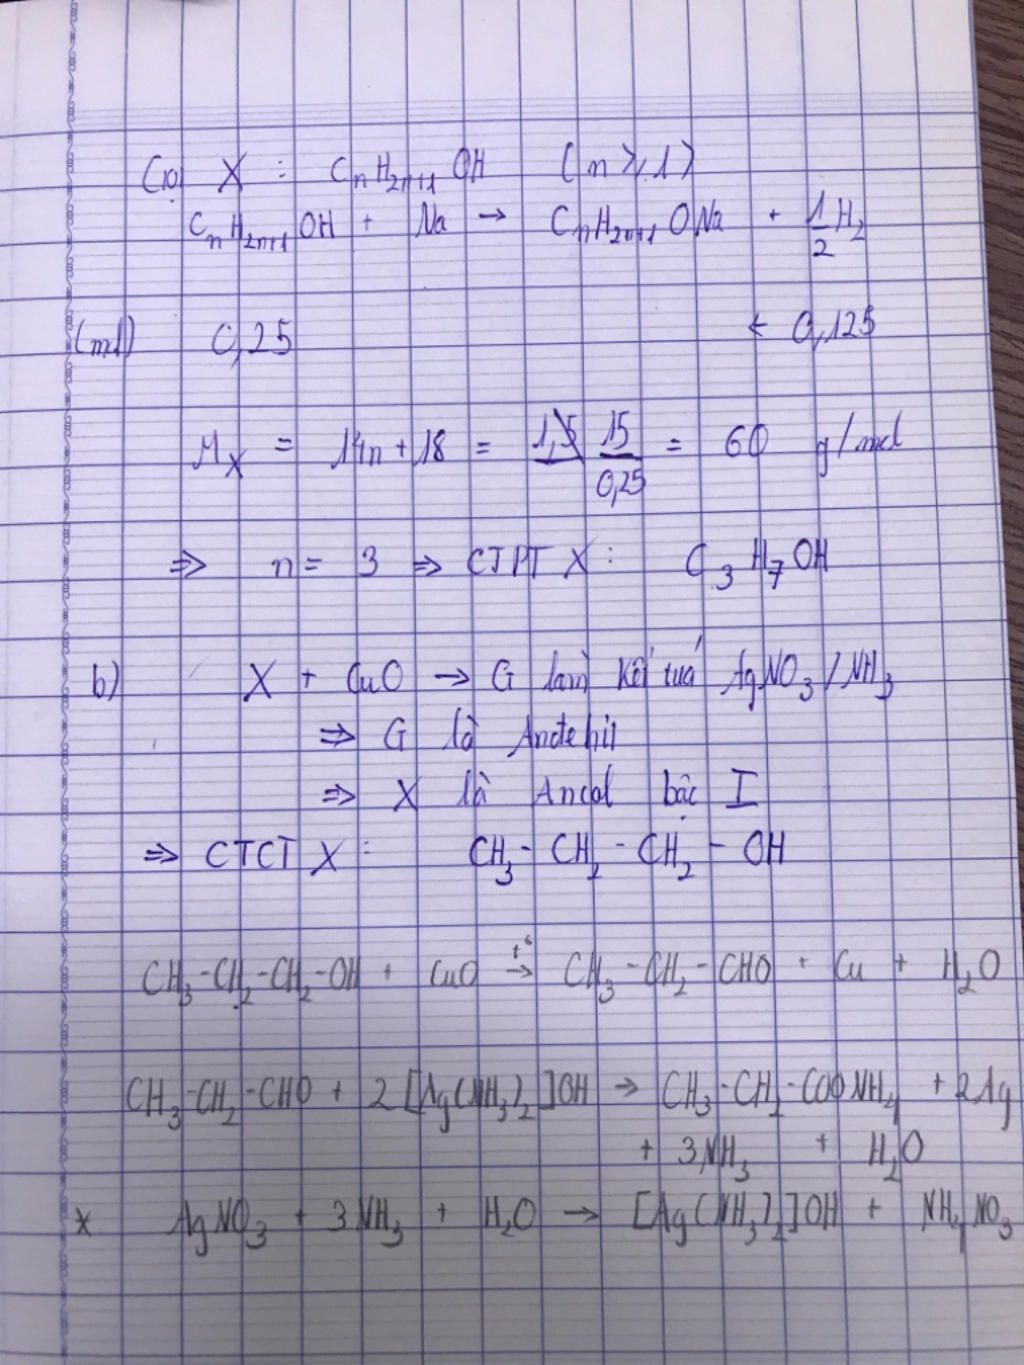 Gọi X : CnH2n+1OH (n ≥ 1)
CnH2n+1OH + Na → CnH2n+1ONa + 1/2 H2
(mol) 0,25 ← 0,125
MX = 14n + 18 = 15/0,25 = 60 g/mol
⇒ n = 3 ⇒ CTPT X : C3H7OH
b) X + CuO → G làm kết tủa AgNO3/NH3
⇒ G là Anđehit
⇒ X là Ancol bậc I
⇒ CTCT X : CH3 - CH2 - CH2 - OH
CH3-CH2-CH2-OH + CuO t°→ CH3-CH2-CHO + Cu + H2O
CH3-CH2-CHO + 2[Ag(NH3)2]OH → CH3-CH2-COONH4 + 2Ag
+ 3NH3 + H2O
* AgNO3 + 3NH3 + H2O → [Ag(NH3)2]OH + NH4NO3